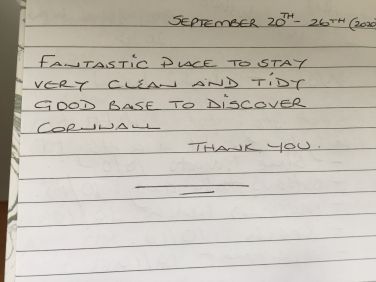 SEPTEMBER 20TH - 26TH (2020)
FANTASTIC PLACE TO STAY
VERY CLEAN AND TIDY
GOOD BASE TO DISCOVER
CORNWALL
THANK YOU.